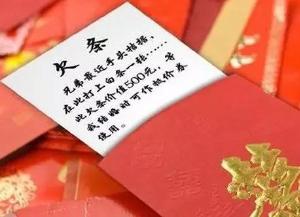 欠条
兄弟最近手头拮据,
在此打上白条一结......
此欠条价值500元,等
我结婚时可作抵价券
使用。